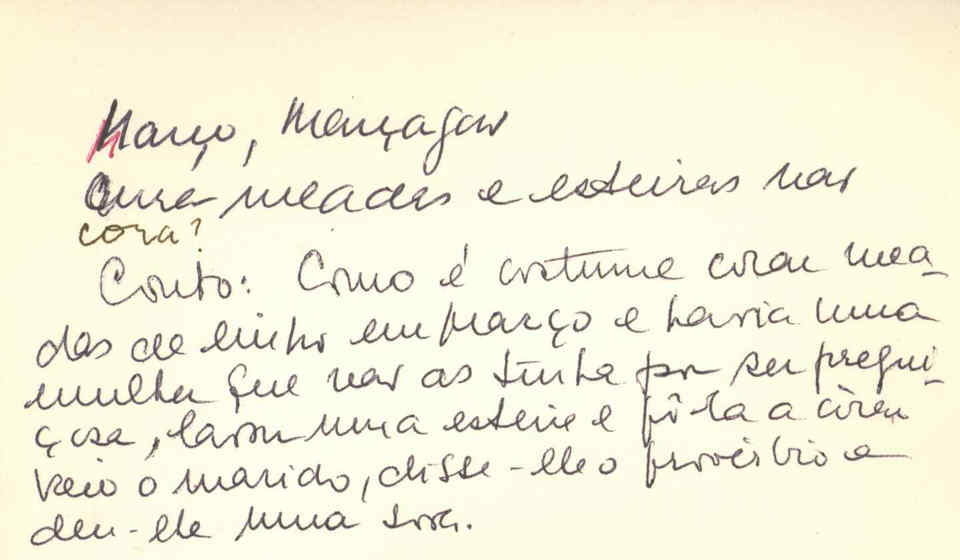 Março, Marçagão
Cura meadas e esteiras não
cora?
Conto: Como é costume corar mea-
das de linho em Março e havia uma
mulher que não as tinha por ser pregui-
çosa, lavou uma esteira e pô-la a corar
veio o marido, disse-lhe o provérbio e
deu-lhe uma sova.